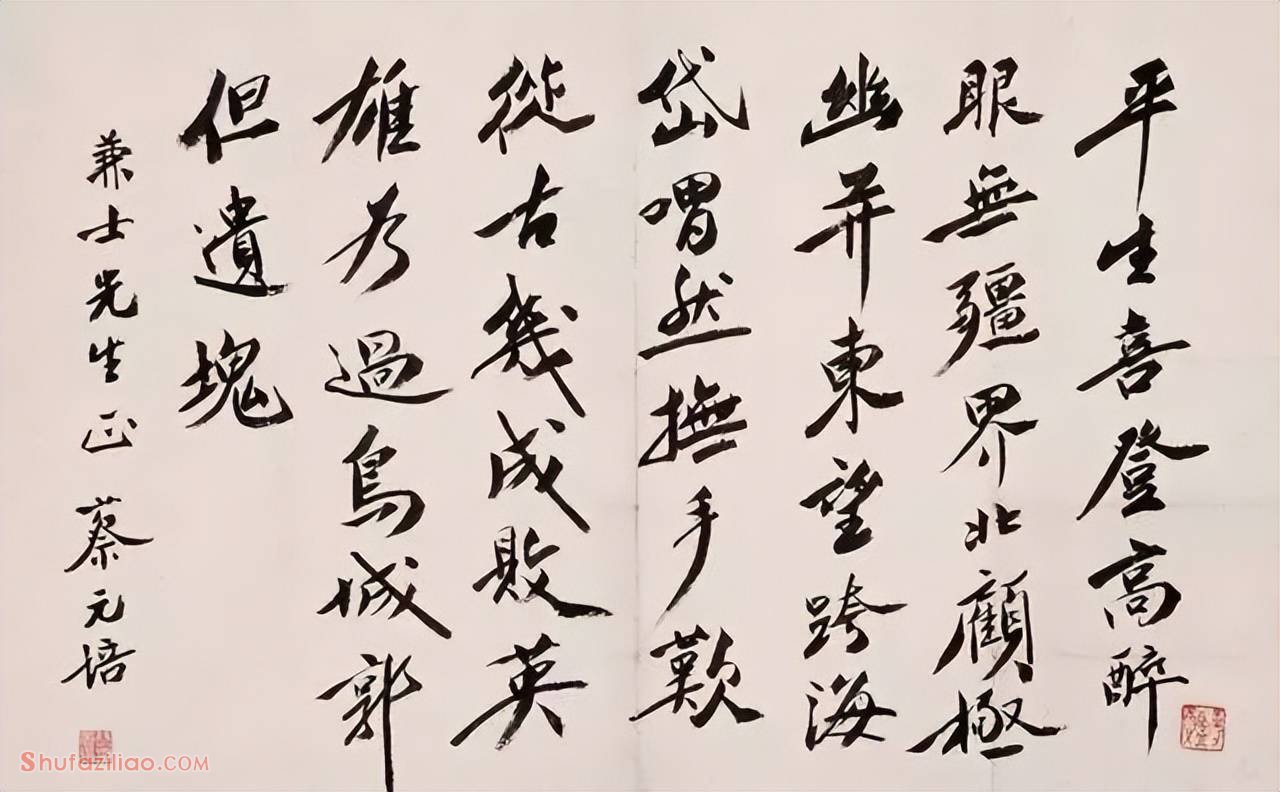 平生喜登高醉
眼無疆界北顧極
幽并東望跨海
岱喟然撫手歎
從古幾成敗英
雄為過鳥城郭
但遺塊
兼士先生正 蔡元培
Shufaziliao.com